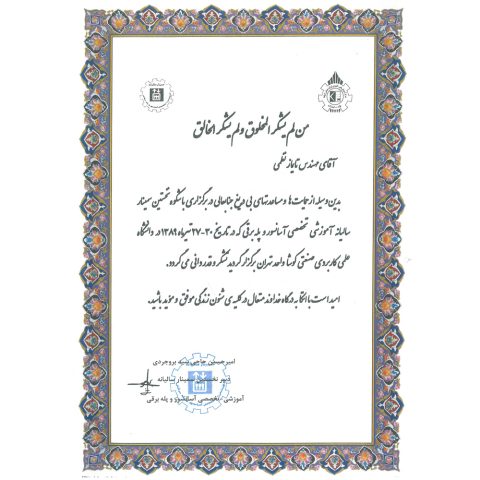 من لم یشکر المخلوق ولم یشکر الخالق
آقای مهندس تایاز تقلمی
بدین وسیله از حمایت ها و مساعدتهای بی دریغ جنابعالی در برگزاری باشکوه نخستین سمینار
سالیانه آموزشی تخصصی آسانسور و پله برقی که در تاریخ ۳۰-۲۷ تیرماه ۱۳۸۹ در دانشگاه
علمی کاربردی صنعتی کوشا واحد تهران برگزار گردید تشکر و قدردانی می گردد.
امید است با اتکا به درگاه خداوند متعال در کلیه ی شئون زندگی موفق و مؤید باشید.
امیرحسین حاجی بسته بروجردی
دبیر نخستین سمینار سالیانه
آموزشی تخصصی آسانسور و پله برقی